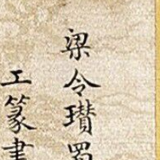 梁令瓚蜀
工篆書